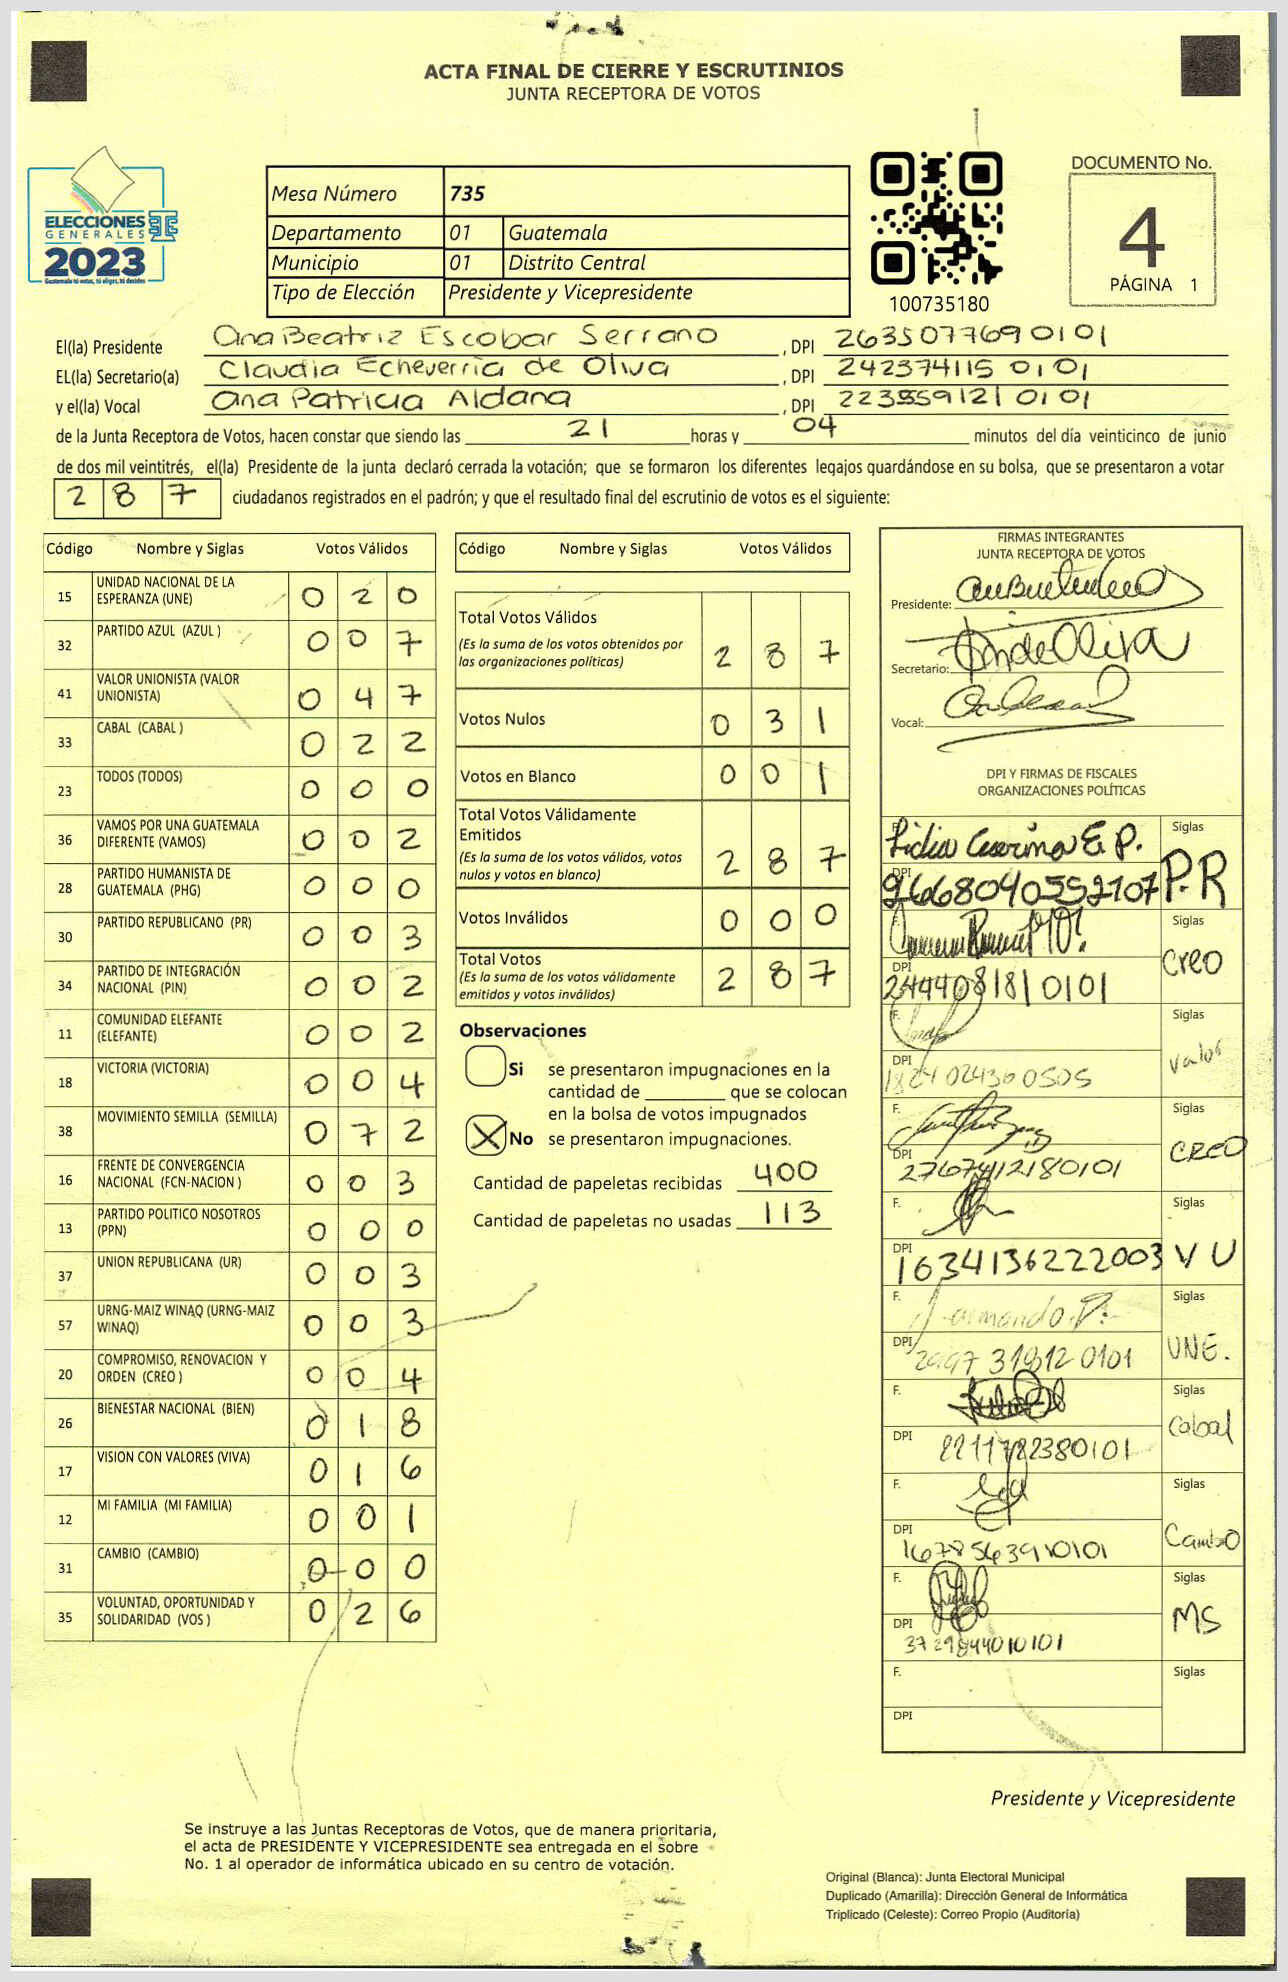 ACTA FINAL DE CIERRE Y ESCRUTINIOS
JUNTA RECEPTORA DE VOTOS
ELECCIONES
GENERALES
2023
Guatemala tú votas, tú eliges, tú decides
Mesa Número 735
Departamento 01 Guatemala
Municipio 01 Distrito Central
Tipo de Elección Presidente y Vicepresidente
100735180
DOCUMENTO No.
4
PÁGINA 1
El(la) Presidente Ana Beatriz Escobar Serrano, DPI 2635077690101
EL(la) Secretario(a) Claudia Echeverria de Oliva, DPI 242374115 0101
y el(la) Vocal Ana Patricia Aldana, DPI 223559121 0101
de la Junta Receptora de Votos, hacen constar que siendo las 21 horas y 04 minutos del día veinticinco de junio
de dos mil veintitrés, el(la) Presidente de la junta declaró cerrada la votación; que se formaron los diferentes legajos guardándose en su bolsa, que se presentaron a votar
2 8 7 ciudadanos registrados en el padrón; y que el resultado final del escrutinio de votos es el siguiente:
Código Nombre y Siglas Votos Válidos
15 UNIDAD NACIONAL DE LA ESPERANZA (UNE) 0 2 0
32 PARTIDO AZUL (AZUL ) 0 0 7
41 VALOR UNIONISTA (VALOR UNIONISTA) 0 4 7
33 CABAL (CABAL ) 0 2 2
23 TODOS (TODOS) 0 0 0
36 VAMOS POR UNA GUATEMALA DIFERENTE (VAMOS) 0 0 2
28 PARTIDO HUMANISTA DE GUATEMALA (PHG) 0 0 0
30 PARTIDO REPUBLICANO (PR) 0 0 3
34 PARTIDO DE INTEGRACIÓN NACIONAL (PIN) 0 0 2
11 COMUNIDAD ELEFANTE (ELEFANTE) 0 0 2
18 VICTORIA (VICTORIA) 0 0 4
38 MOVIMIENTO SEMILLA (SEMILLA) 0 7 2
16 FRENTE DE CONVERGENCIA NACIONAL (FCN-NACION ) 0 0 3
13 PARTIDO POLITICO NOSOTROS (PPN) 0 0 0
37 UNION REPUBLICANA (UR) 0 0 3
57 URNG-MAIZ WINAQ (URNG-MAIZ WINAQ) 0 0 3
20 COMPROMISO, RENOVACION Y ORDEN (CREO ) 0 0 4
26 BIENESTAR NACIONAL (BIEN) 0 1 8
17 VISION CON VALORES (VIVA) 0 1 6
12 MI FAMILIA (MI FAMILIA) 0 0 1
31 CAMBIO (CAMBIO) 0 0 0
35 VOLUNTAD, OPORTUNIDAD Y SOLIDARIDAD (VOS ) 0 2 6
Código Nombre y Siglas Votos Válidos
Total Votos Válidos
(Es la suma de los votos obtenidos por
las organizaciones políticas) 2 8 7
Votos Nulos 0 3 1
Votos en Blanco 0 0 1
Total Votos Válidamente
Emitidos
(Es la suma de los votos válidos, votos
nulos y votos en blanco) 2 8 7
Votos Inválidos 0 0 0
Total Votos
(Es la suma de los votos válidamente
emitidos y votos inválidos) 2 8 7
Observaciones
Si se presentaron impugnaciones en la
cantidad de ________ que se colocan
en la bolsa de votos impugnados
X No se presentaron impugnaciones.
Cantidad de papeletas recibidas 400
Cantidad de papeletas no usadas 113
FIRMAS INTEGRANTES
JUNTA RECEPTORA DE VOTOS
Presidente:
Secretario:
Vocal:
DPI Y FIRMAS DE FISCALES
ORGANIZACIONES POLÍTICAS
F. Siglas
DPI 2668040552107 P.R
F. Siglas
DPI 2444081810101 Creo
F. Siglas
DPI valor
F. Siglas
DPI 27674112180101 CREO
F. Siglas
DPI 1634136222003 V U
F. Siglas
DPI UNE.
F. Siglas
DPI 2211782380101 Cabal
F. Siglas
DPI Cambio
F. Siglas
DPI 3729844010101 MS
F. Siglas
DPI
Presidente y Vicepresidente
Se instruye a las Juntas Receptoras de Votos, que de manera prioritaria,
el acta de PRESIDENTE Y VICEPRESIDENTE sea entregada en el sobre
No. 1 al operador de informática ubicado en su centro de votación.
Original (Blanca): Junta Electoral Municipal
Duplicado (Amarilla): Dirección General de Informática
Triplicado (Celeste): Correo Propio (Auditoría)